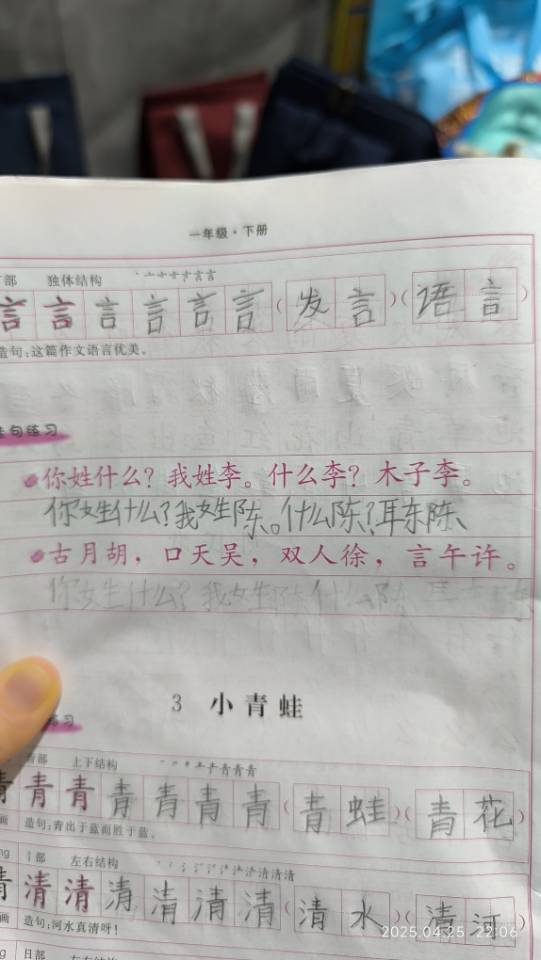 一年级·下册
部 独体结构
言 言 言 言 言 言 (发言)(语言)
造句:这篇作文语言优美。
句练习
你姓什么?我姓李。什么李?木子李。
你姓什么?我姓陈。什么陈?耳东陈、
古月胡,口天吴,双人徐,言午许。
你姓什么?我姓陈什么陈 耳东陈
3 小青蛙
练习
青部 上下结构
青 青 青 青 青 青 青 (青蛙)(青花)
画 造句:青出于蓝而胜于蓝。
ng 氵部 左右结构
青 清 清 清 清 清 清 (清水)(清河)
画 造句:河水真清呀!
2025.04.25 22:06
ng 日部 左右结构